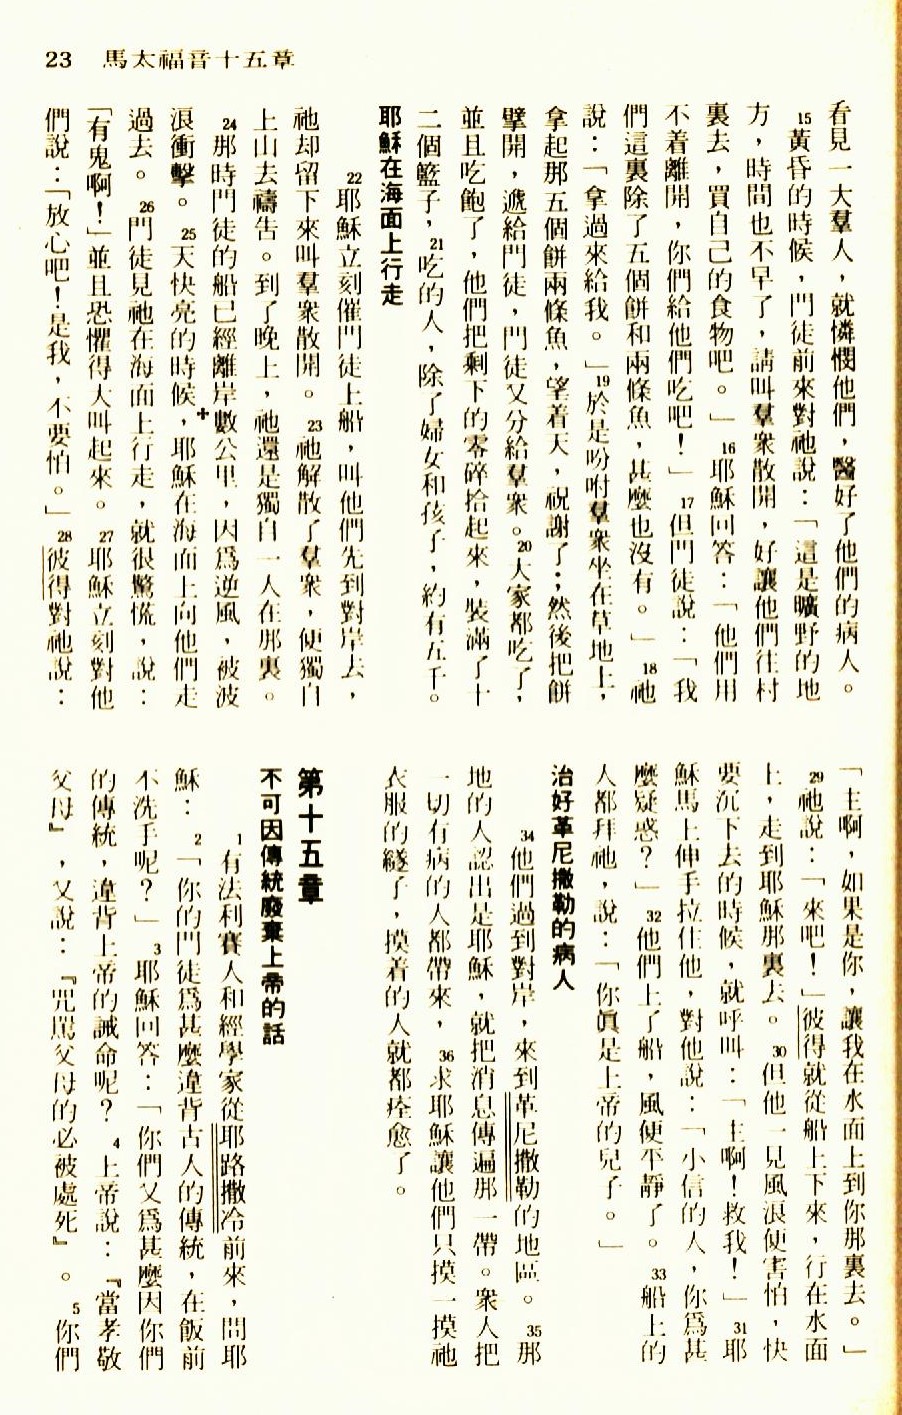 23 馬太福音十五章
看見一大羣人，就憐憫他們，醫好了他們的病人。
15黃昏的時候，門徒前來對祂說：「這是曠野的地
方，時間也不早了，請叫羣衆散開，好讓他們往村
裏去，買自己的食物吧。」16耶穌回答：「他們用
不着離開，你們給他們吃吧！」17但門徒說：「我
們這裏除了五個餅和兩條魚，甚麼也沒有。」18祂
說：「拿過來給我。」19於是吩咐羣衆坐在草地上，
拿起那五個餅兩條魚，望着天，祝謝了；然後把餅
擘開，遞給門徒，門徒又分給羣衆。20大家都吃了，
並且吃飽了，他們把剩下的零碎拾起來，裝滿了十
二個籃子，21吃的人，除了婦女和孩子，約有五千。
耶穌在海面上行走
22耶穌立刻催門徒上船，叫他們先到對岸去，
祂却留下來叫羣衆散開。23祂解散了羣衆，便獨自
上山去禱告。到了晚上，祂還是獨自一人在那裏。
24那時門徒的船已經離岸數公里，因爲逆風，被波
浪衝擊。25天快亮的時候，耶穌在海面上向他們走
過去。26門徒見祂在海面上行走，就很驚慌，說：
「有鬼啊！」並且恐懼得大叫起來。27耶穌立刻對他
們說：「放心吧！是我，不要怕。」28彼得對祂說：
「主啊，如果是你，讓我在水面上到你那裏去。」
29祂說：「來吧！」彼得就從船上下來，行在水面
上，走到耶穌那裏去。30但他一見風浪便害怕，快
要沉下去的時候，就呼叫：「主啊！救我！」31耶
穌馬上伸手拉住他，對他說：「小信的人，你爲甚
麼疑惑？」32他們上了船，風便平靜了。33船上的
人都拜祂，說：「你眞是上帝的兒子。」
治好革尼撒勒的病人
34他們過到對岸，來到革尼撒勒的地區。35那
地的人認出是耶穌，就把消息傳遍那一帶。衆人把
一切有病的人都帶來，36求耶穌讓他們只摸一摸祂
衣服的繸子，摸着的人就都痊愈了。
第十五章
不可因傳統廢棄上帝的話
1有法利賽人和經學家從耶路撒冷前來，問耶
穌：2「你的門徒爲甚麼違背古人的傳統，在飯前
不洗手呢？」3耶穌回答：「你們又爲甚麼因你們
的傳統，違背上帝的誡命呢？4上帝說：『當孝敬
父母』，又說：『咒駡父母的必被處死』。5你們